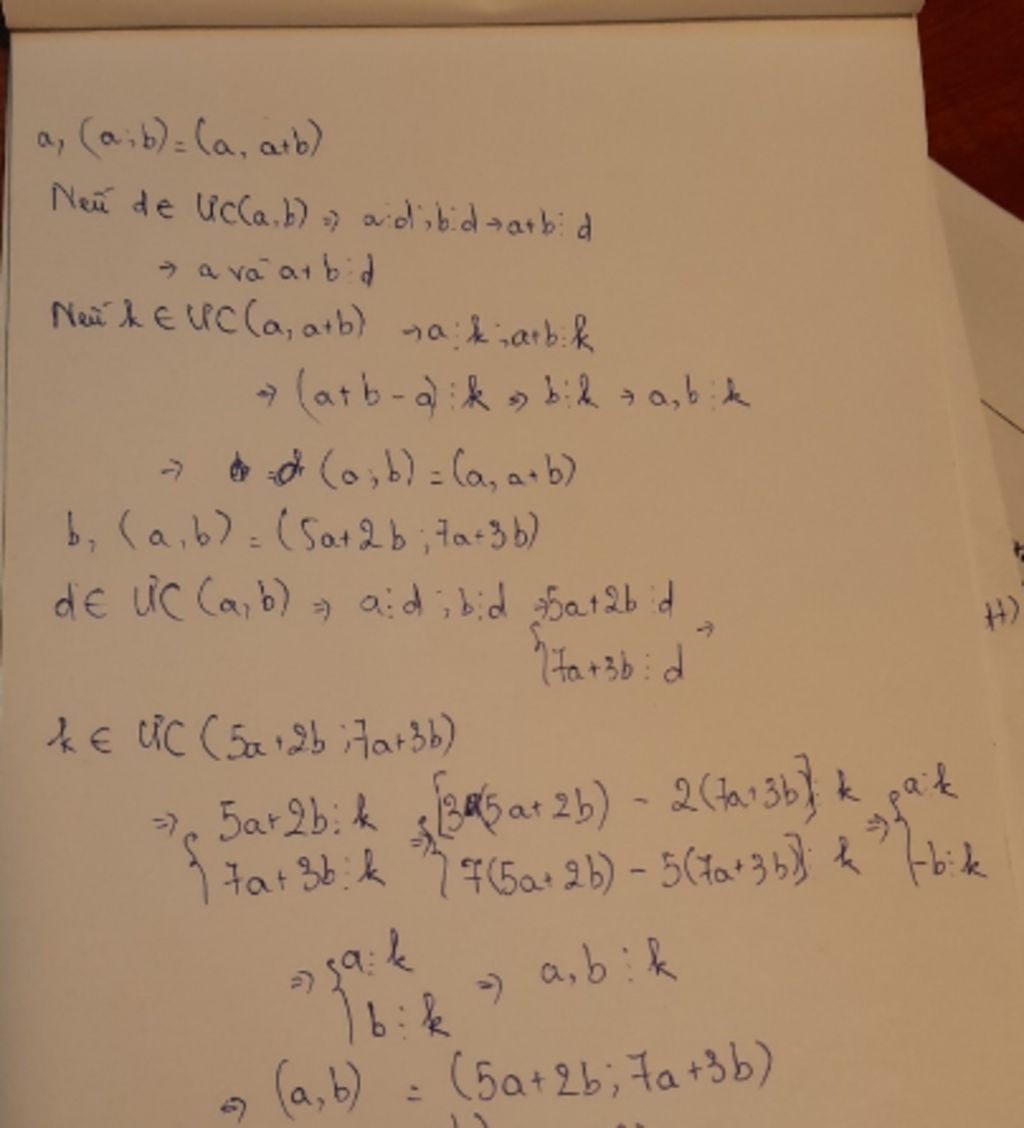 a, (a;b) = (a, a+b)
Nếu d ∈ ƯC(a,b) => a⋮d; b⋮d → a+b⋮d
→ a và a+b⋮d
Nếu k ∈ ƯC(a, a+b) → a⋮k; a+b⋮k
=> (a+b-a)⋮k => b⋮k → a,b⋮k
=> (a;b) = (a, a+b)
b, (a,b) = (5a+2b; 7a+3b)
d ∈ ƯC(a,b) => a⋮d; b⋮d => { 5a+2b⋮d
7a+3b⋮d →
k ∈ ƯC(5a+2b; 7a+3b)
=> { 5a+2b⋮k => { [3(5a+2b) - 2(7a+3b)]⋮k => { a⋮k
7a+3b⋮k 7(5a+2b) - 5(7a+3b)]⋮k -b⋮k
=> { a⋮k => a,b⋮k
b⋮k
=> (a,b) = (5a+2b; 7a+3b)